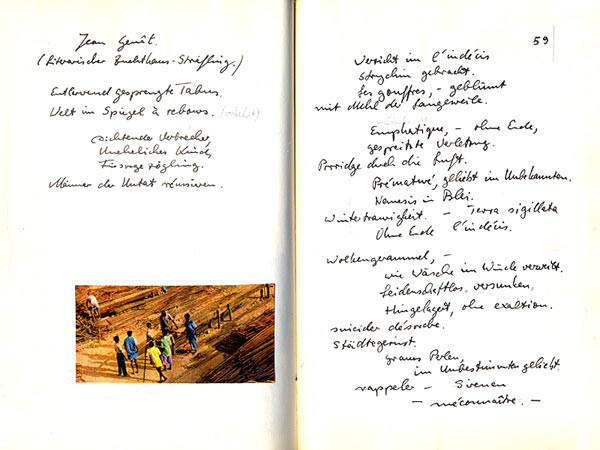 Jean Genêt.
(Literarischer Zuchthaus-Sträfling.)
Entlarvend gesprengte Tabus.
Welt im Spiegel à rebours.
Dichtender Verbrecher,
Uneheliches Kind,
Fürsorgezögling.
Männer der Untat réussiren.
59
Verzicht im l'indécis
Strychnin gebracht.
Les gouffres, – geblümt
mit Mehl der Langeweile.
Emphatique, – ohne Ende,
gespreitzte Verletzung.
Porridge durch die Luft.
Prématuré, geliebt im Unbekannten.
Nemesis in Blei.
Wintertraurigkeit. – Terra sigillata
Ohne Ende l'indécis.
Wolkengerammel, –
wie Wäsche im Winde verweilt.
Leidenschaftslos, versunken,
Hingelagert, ohne exaltion.
suicider désordre.
Städtegerinst.
graues Perlen,
im Unbestimmten geliebt.
rappeler – Sirenen
– méconnaître. –